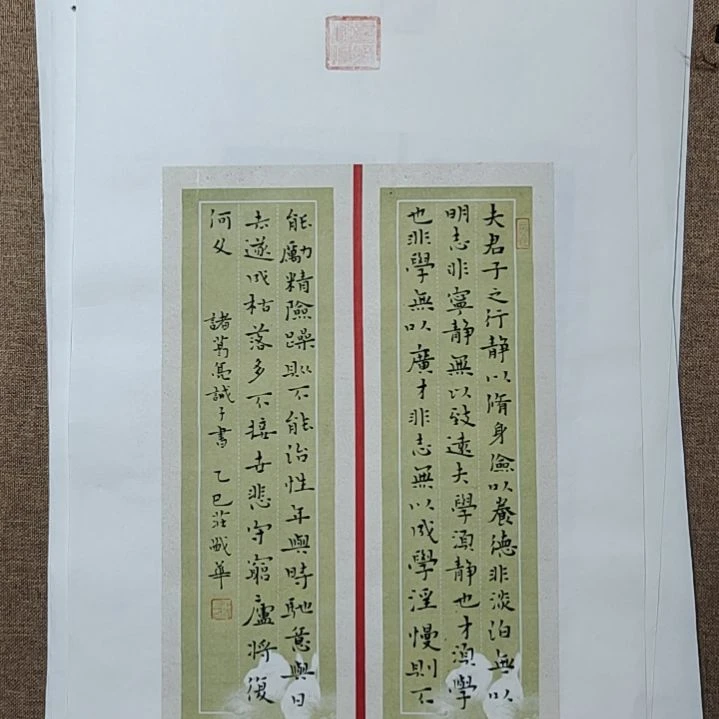 夫君子之行静以脩身儉以養德非淡泊無以
明志非寧静無以致遠夫學須静也才須學
也非學無以廣才非志無以成學淫慢則不
能勵精險躁則不能治性年與時馳意與日
去遂成枯落多不接世悲守窮廬將復
何及
諸葛亮誡子書 乙巳莊戰華